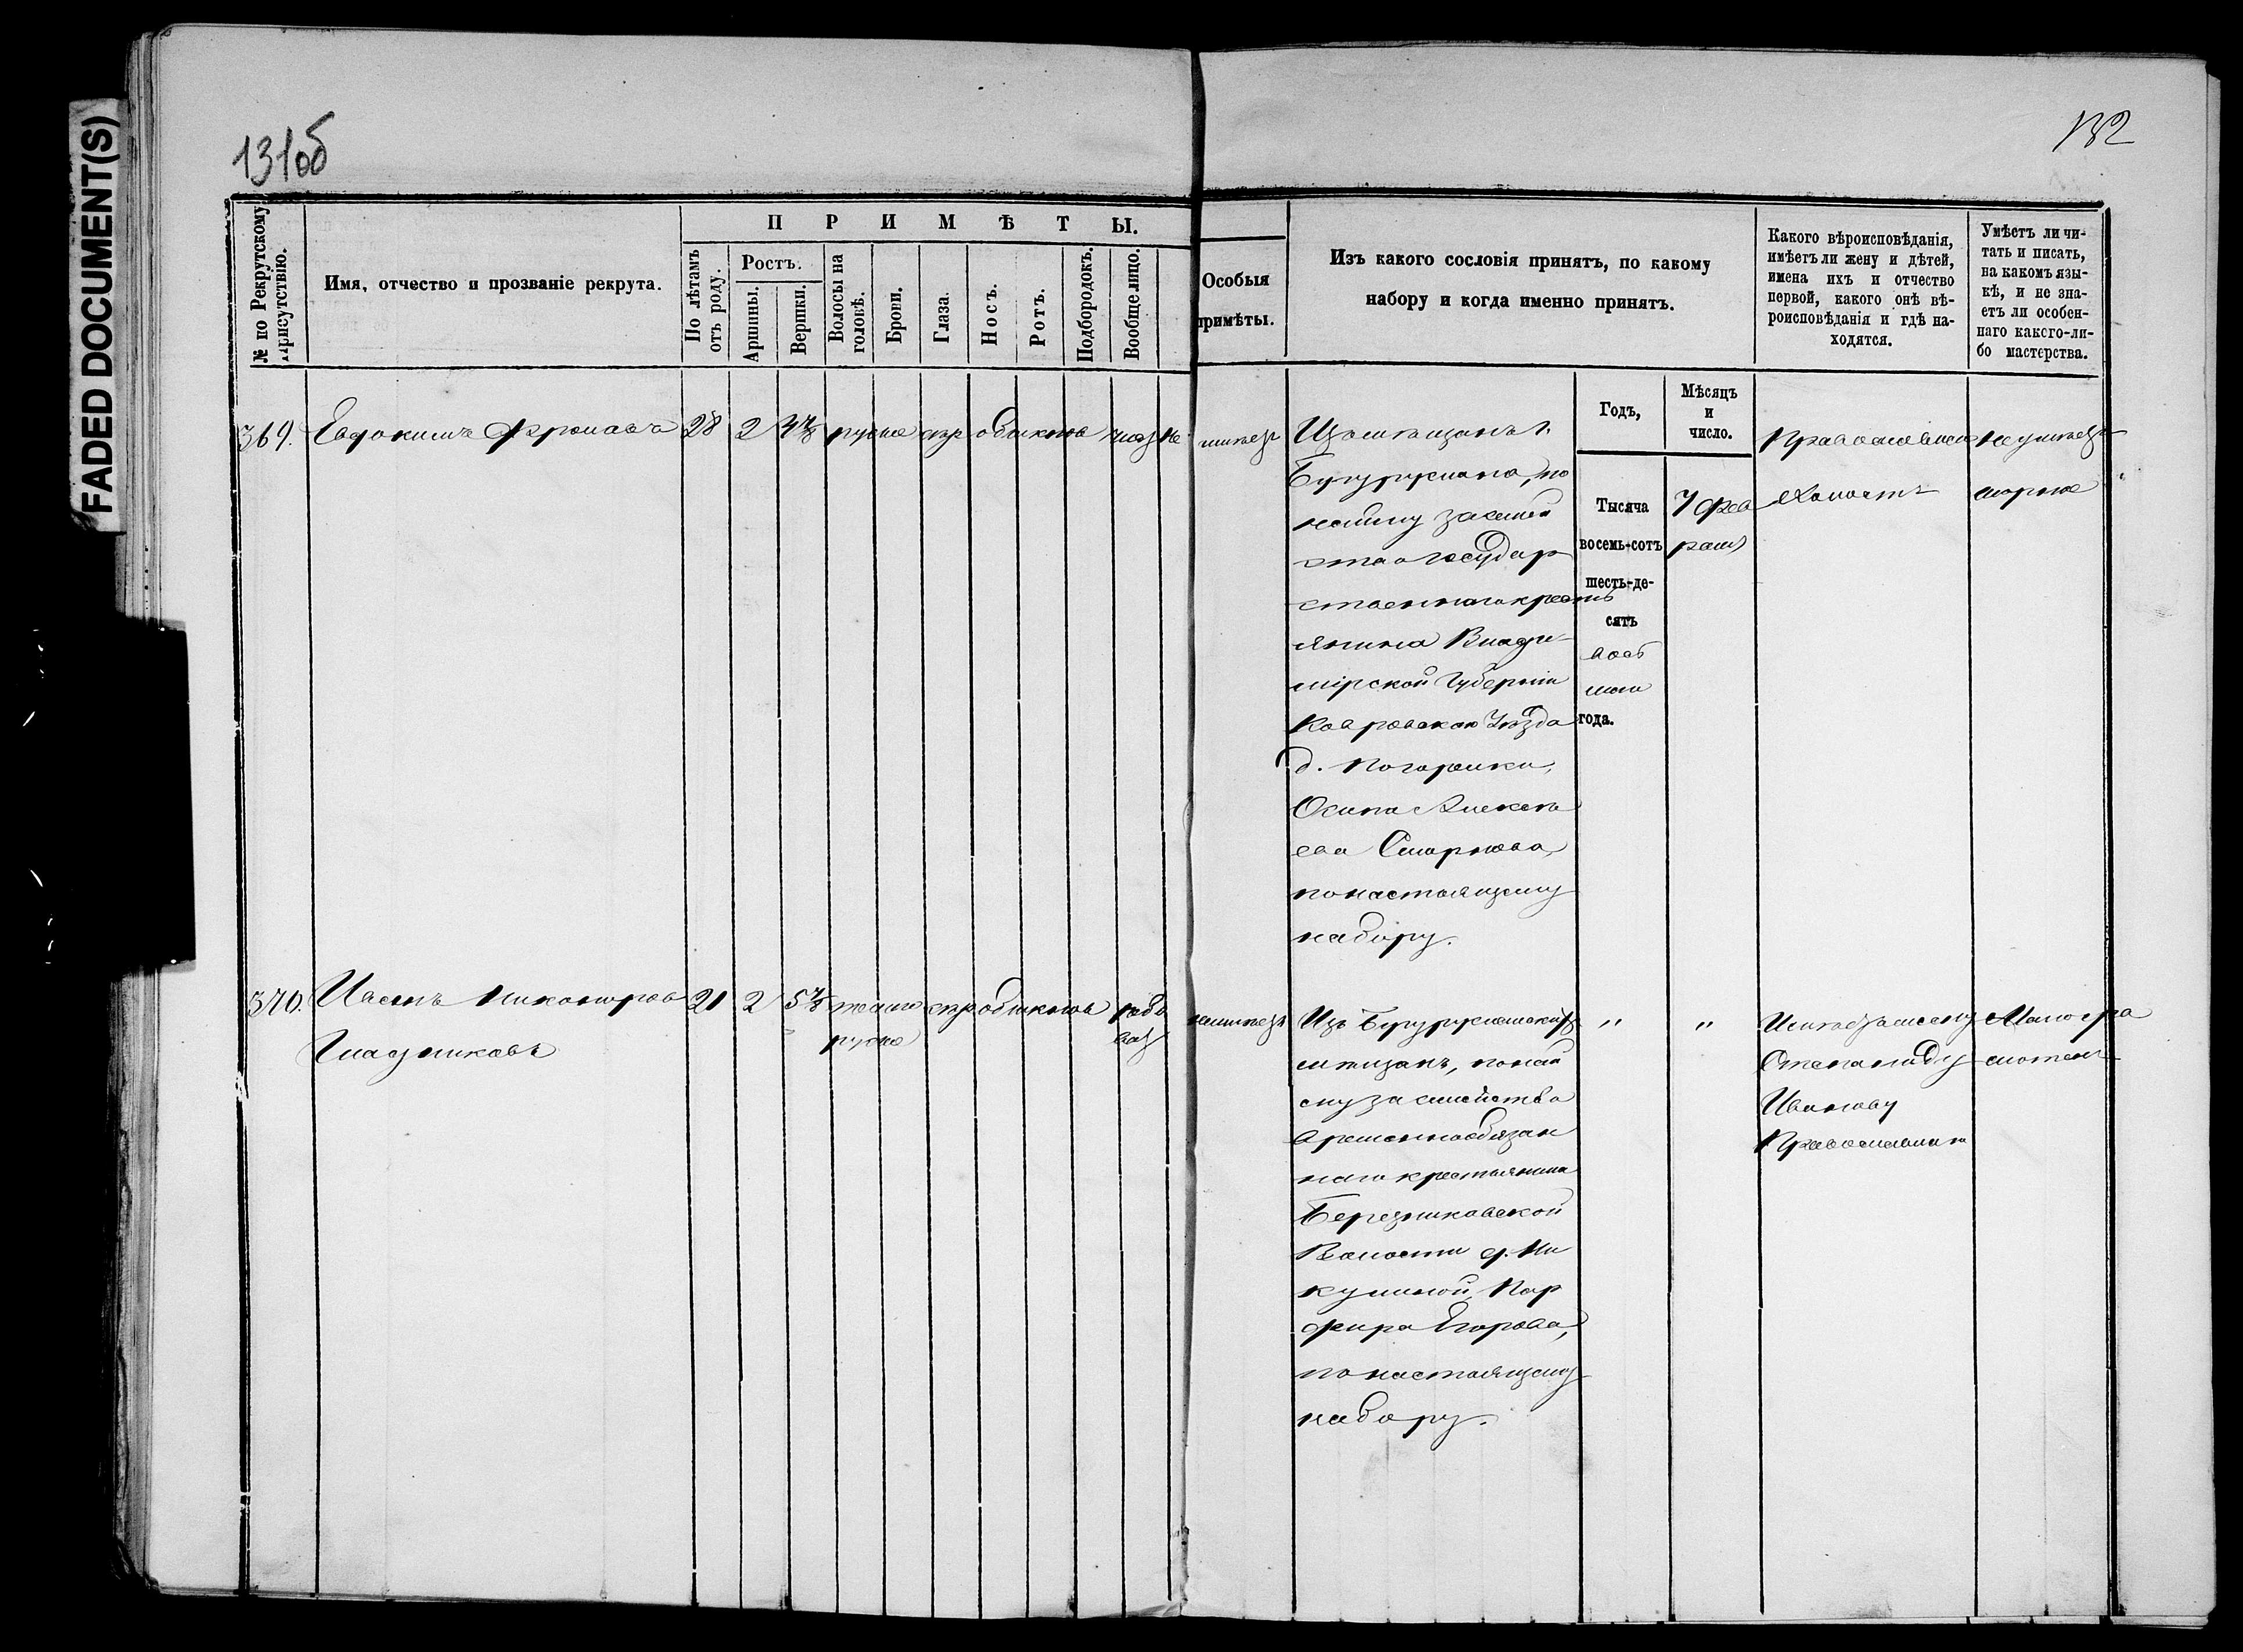 FADED DOCUMENT(S)
131об
132
№ по Рекрутскому Присутствію.
Имя, отчество и прозваніе рекрута.
ПРИМѢТЫ.
По лѣтамъ отъ роду.
Ростъ.
Аршины.
Вершки.
Волосы на головѣ.
Брови.
Глаза.
Носъ.
Ротъ.
Подбородокъ.
Вообще лицо.
Особыя
примѣты.
Изъ какого сословія принятъ, по какому
набору и когда именно принятъ.
Какого вѣроисповѣданія,
имѣетъ ли жену и дѣтей,
имена ихъ и отчество
первой, какого онѣ вѣ-
роисповѣданія и гдѣ на-
ходятся.
Умѣетъ ли чи-
тать и писать,
на какомъ язы-
кѣ, и не зна-
етъ ли особен-
наго какого-ли-
бо мастерства.
369. Евдокимъ Фроловъ 28 2 4⅞ русые обыкнов не имѣетъ
Изъ мѣщанъ г.
Бугуруслана, по
найму за семей
ство Государ
ственнаго кресть
янина Влади-
мірской Губерніи
Ковровскаго Уѣзда
д. Погорелки,
Осипа Алексѣ
ева Смирнова,
по настоящему
набору.
Годъ,
Тысяча
восемь-сотъ
шесть-де-
сятъ
вось
маго
года.
Мѣсяцъ
и
число.
7 фев
раля
Православнаго
холостъ
не умѣетъ
370. Иванъ Никоноровъ 21 2 5⅞ темно обыкнов рябо
Гладниковъ русые ват
неимѣетъ
Изъ Бугурусланскихъ
мѣщанъ, по най
му за семейство
временнообязан
наго крестьянина
Березниковской
Волости д. Ни
кулиной, Пор
фира Егорова,
по настоящему
набору.
" "
Степаниду
Иванову
Православнаго
Малогра
мотенъ